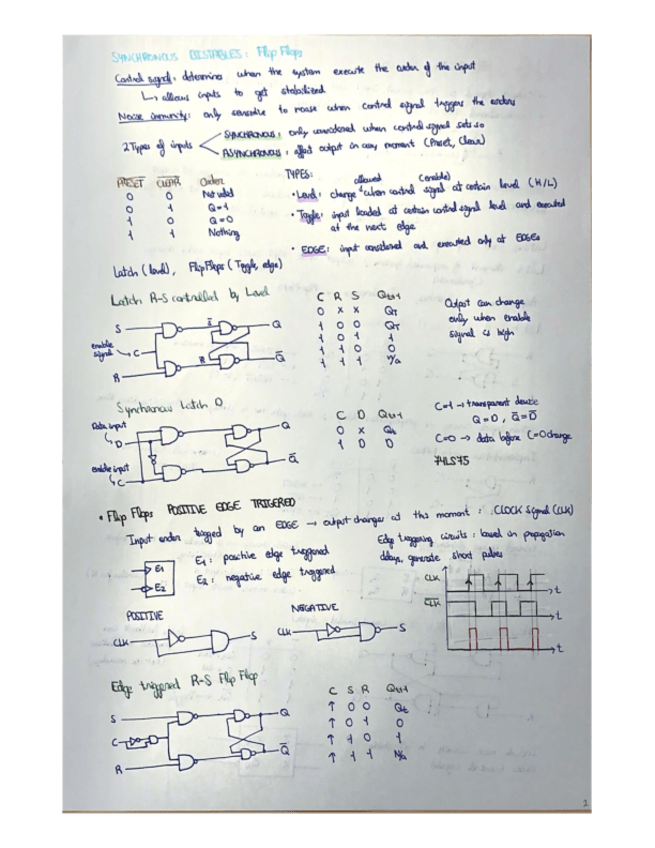 SYNCHRONOUS BISTABLES: Flip Flops
Control signal: determine when the system execute the order of the input
↳ allows inputs to get stabilized
Noise immunity: only sensitive to noise when control signal triggers the orders
2 Types of inputs
SYNCHRONOUS: only considered when control signal sets so
ASYNCHRONOUS: affect output in any moment (Preset, Clear)
PRESET CLEAR Order
0 0 Not valid
0 1 Q=1
1 0 Q=0
1 1 Nothing
TYPES:
allowed (enable)
• Level: change when control signal at certain level (H/L)
• Toggle: input loaded at certain control signal level and executed
at the next edge
• EDGE: input considered and executed only at EDGEs
Latch (level), FlipFlops (Toggle, edge)
Latch R-S controlled by Level
S
enable
signal
C
R
S̅
R̅
Q
Q̅
C R S Qt+1
0 x x QT
1 0 0 QT
1 0 1 1
1 1 0 0
1 1 1 N/a
Output can change
only when enable
signal is high
Synchronous Latch D
Data input
D
enable input
C
Q
Q̅
C D Qt+1
0 x Qt
1 D D
C=1 → transparent device
Q=D, Q̅=D̅
C=0 → data before C=0 change
74LS75
• Flip Flops POSITIVE EDGE TRIGERED
Input order trigged by an EDGE → output changes at this moment: CLOCK Signal (CLK)
E1
E2
E1: positive edge triggered
E2: negative edge triggered
Edge triggering circuits: based in propagation
delays, generate short pulses
CLK
t
C̅L̅K̅
t
t
POSITIVE
CLK
S
NEGATIVE
CLK
S
Edge triggered R-S Flip Flop
S
C
R
Q
Q̅
C S R Qt+1
↑ 0 0 Qt
↑ 0 1 0
↑ 1 0 1
↑ 1 1 N/a